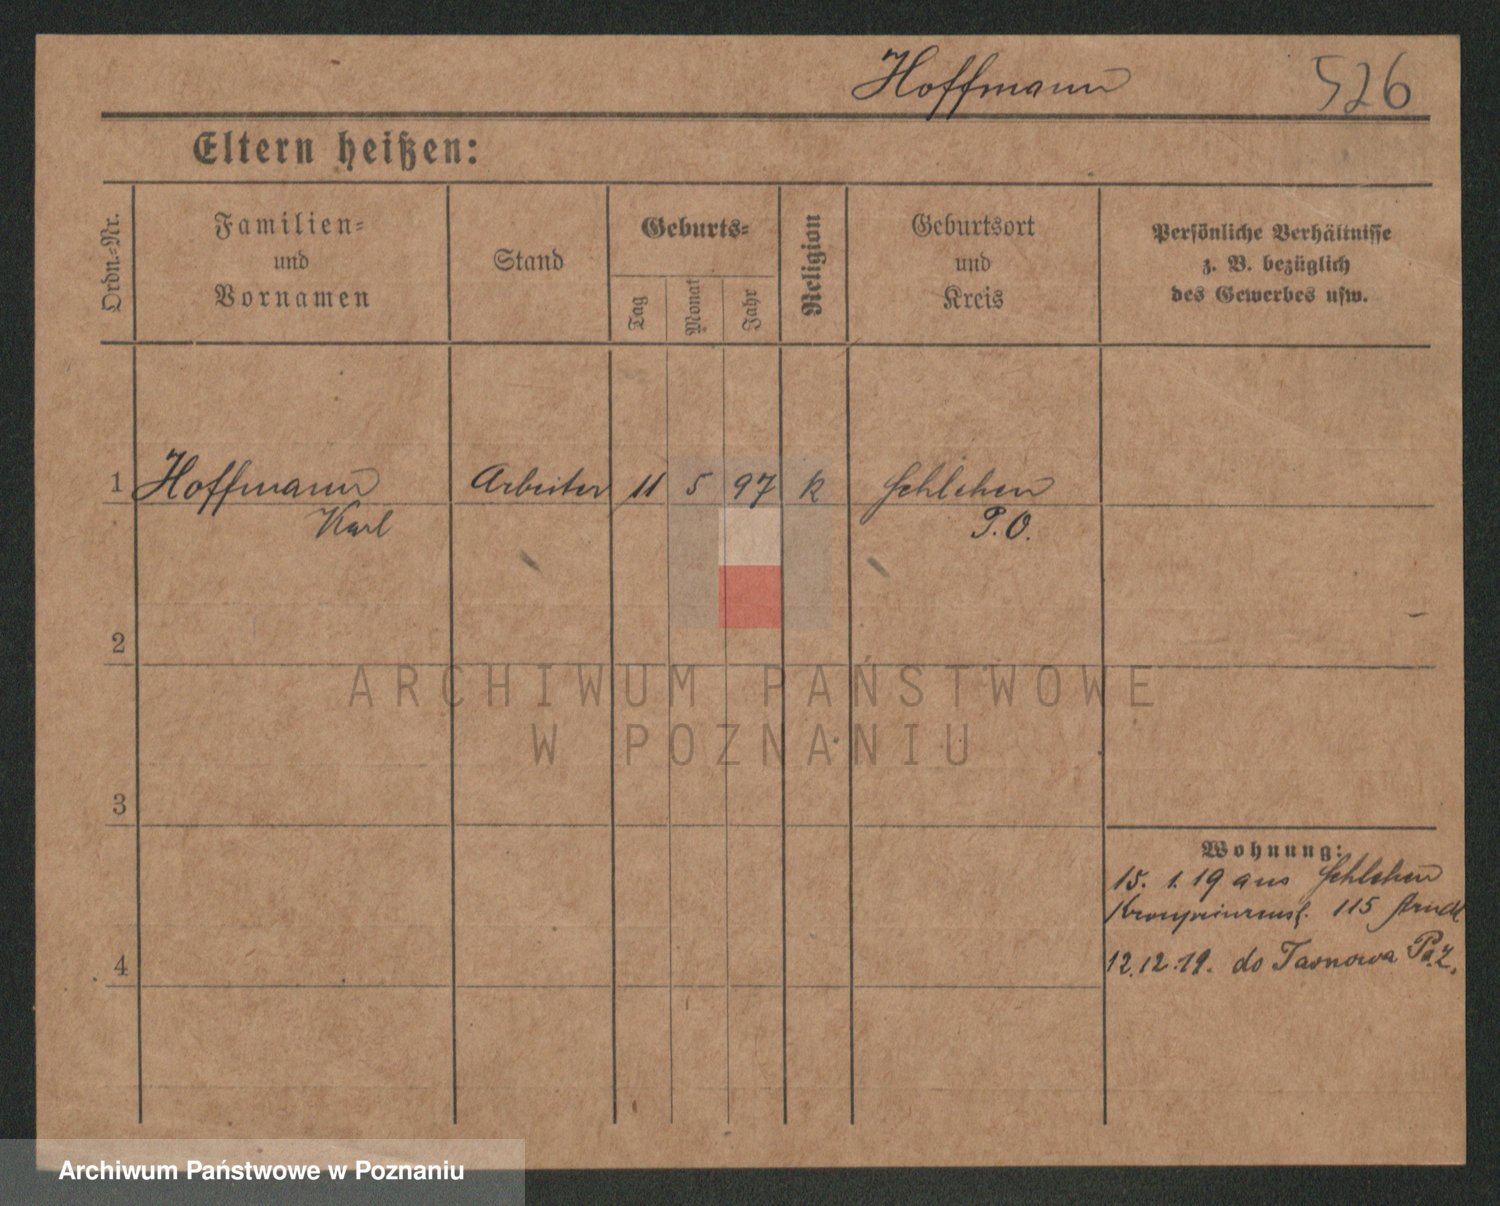 Hoffmann 526
Eltern heißen:
Ordn.-Nr.
Familien-
und
Vornamen
Stand
Geburts-
Tag
Monat
Jahr
Religion
Geburtsort
und
Kreis
Persönliche Verhältnisse
z. B. bezüglich
des Gewerbes usw.
1 Hoffmann Arbeiter 11 5 97 k Schlehen
Karl P.O.
2
ARCHIWUM PAŃSTWOWE
W POZNANIU
3
Wohnung:
15. 1. 19 aus Schlehen
Kronprinzenst. 115
4
12.12.19. do Tarnowa
Archiwum Państwowe w Poznaniu